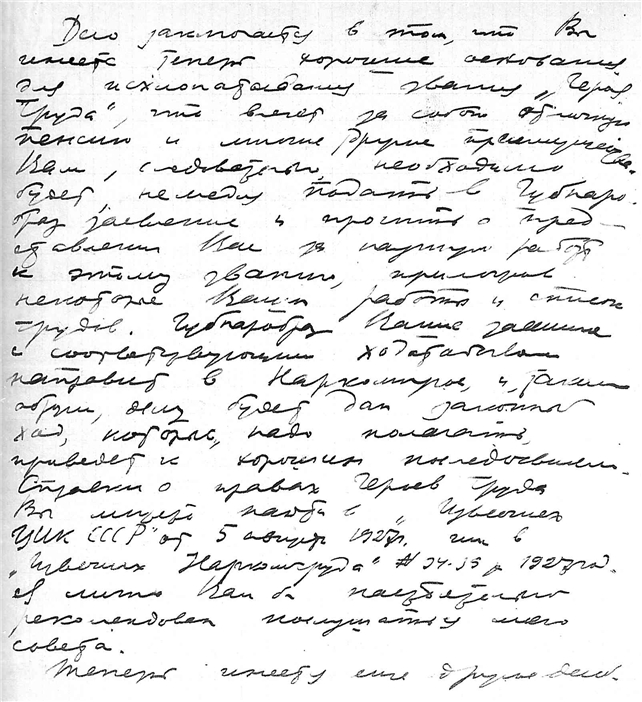 Дело заключается в том, что Вы
имеете теперь хорошие основания
для исхлопатывания звания „Героя
Труда“, что влечет за собою отличную
пенсию и многие другие преимущества.
Вам, следовательно, необходимо
будет, немедля подать в Губнаро-
браз заявление и просить о пред-
ставлении Вас за научную работу
к этому званию, приложив
некоторые Ваши работы и список
трудов. Губнаробраз Ваше заявление
с соответствующим ходатайством
направит в Наркомпрос, и, таким
образом, делу будет дан законный
ход, который, надо полагать,
приведет к хорошим последствиям.
Справки о правах Героев Труда
Вы можете найти в „Известиях
ЦИК СССР“ от 5 августа 1927 г. или в
„Известиях Наркомтруда“ № 34-35 за 1927 год.
Я лично Вам бы настоятельно
рекомендовал послушаться моего
совета.
Теперь имеется еще другое дело.